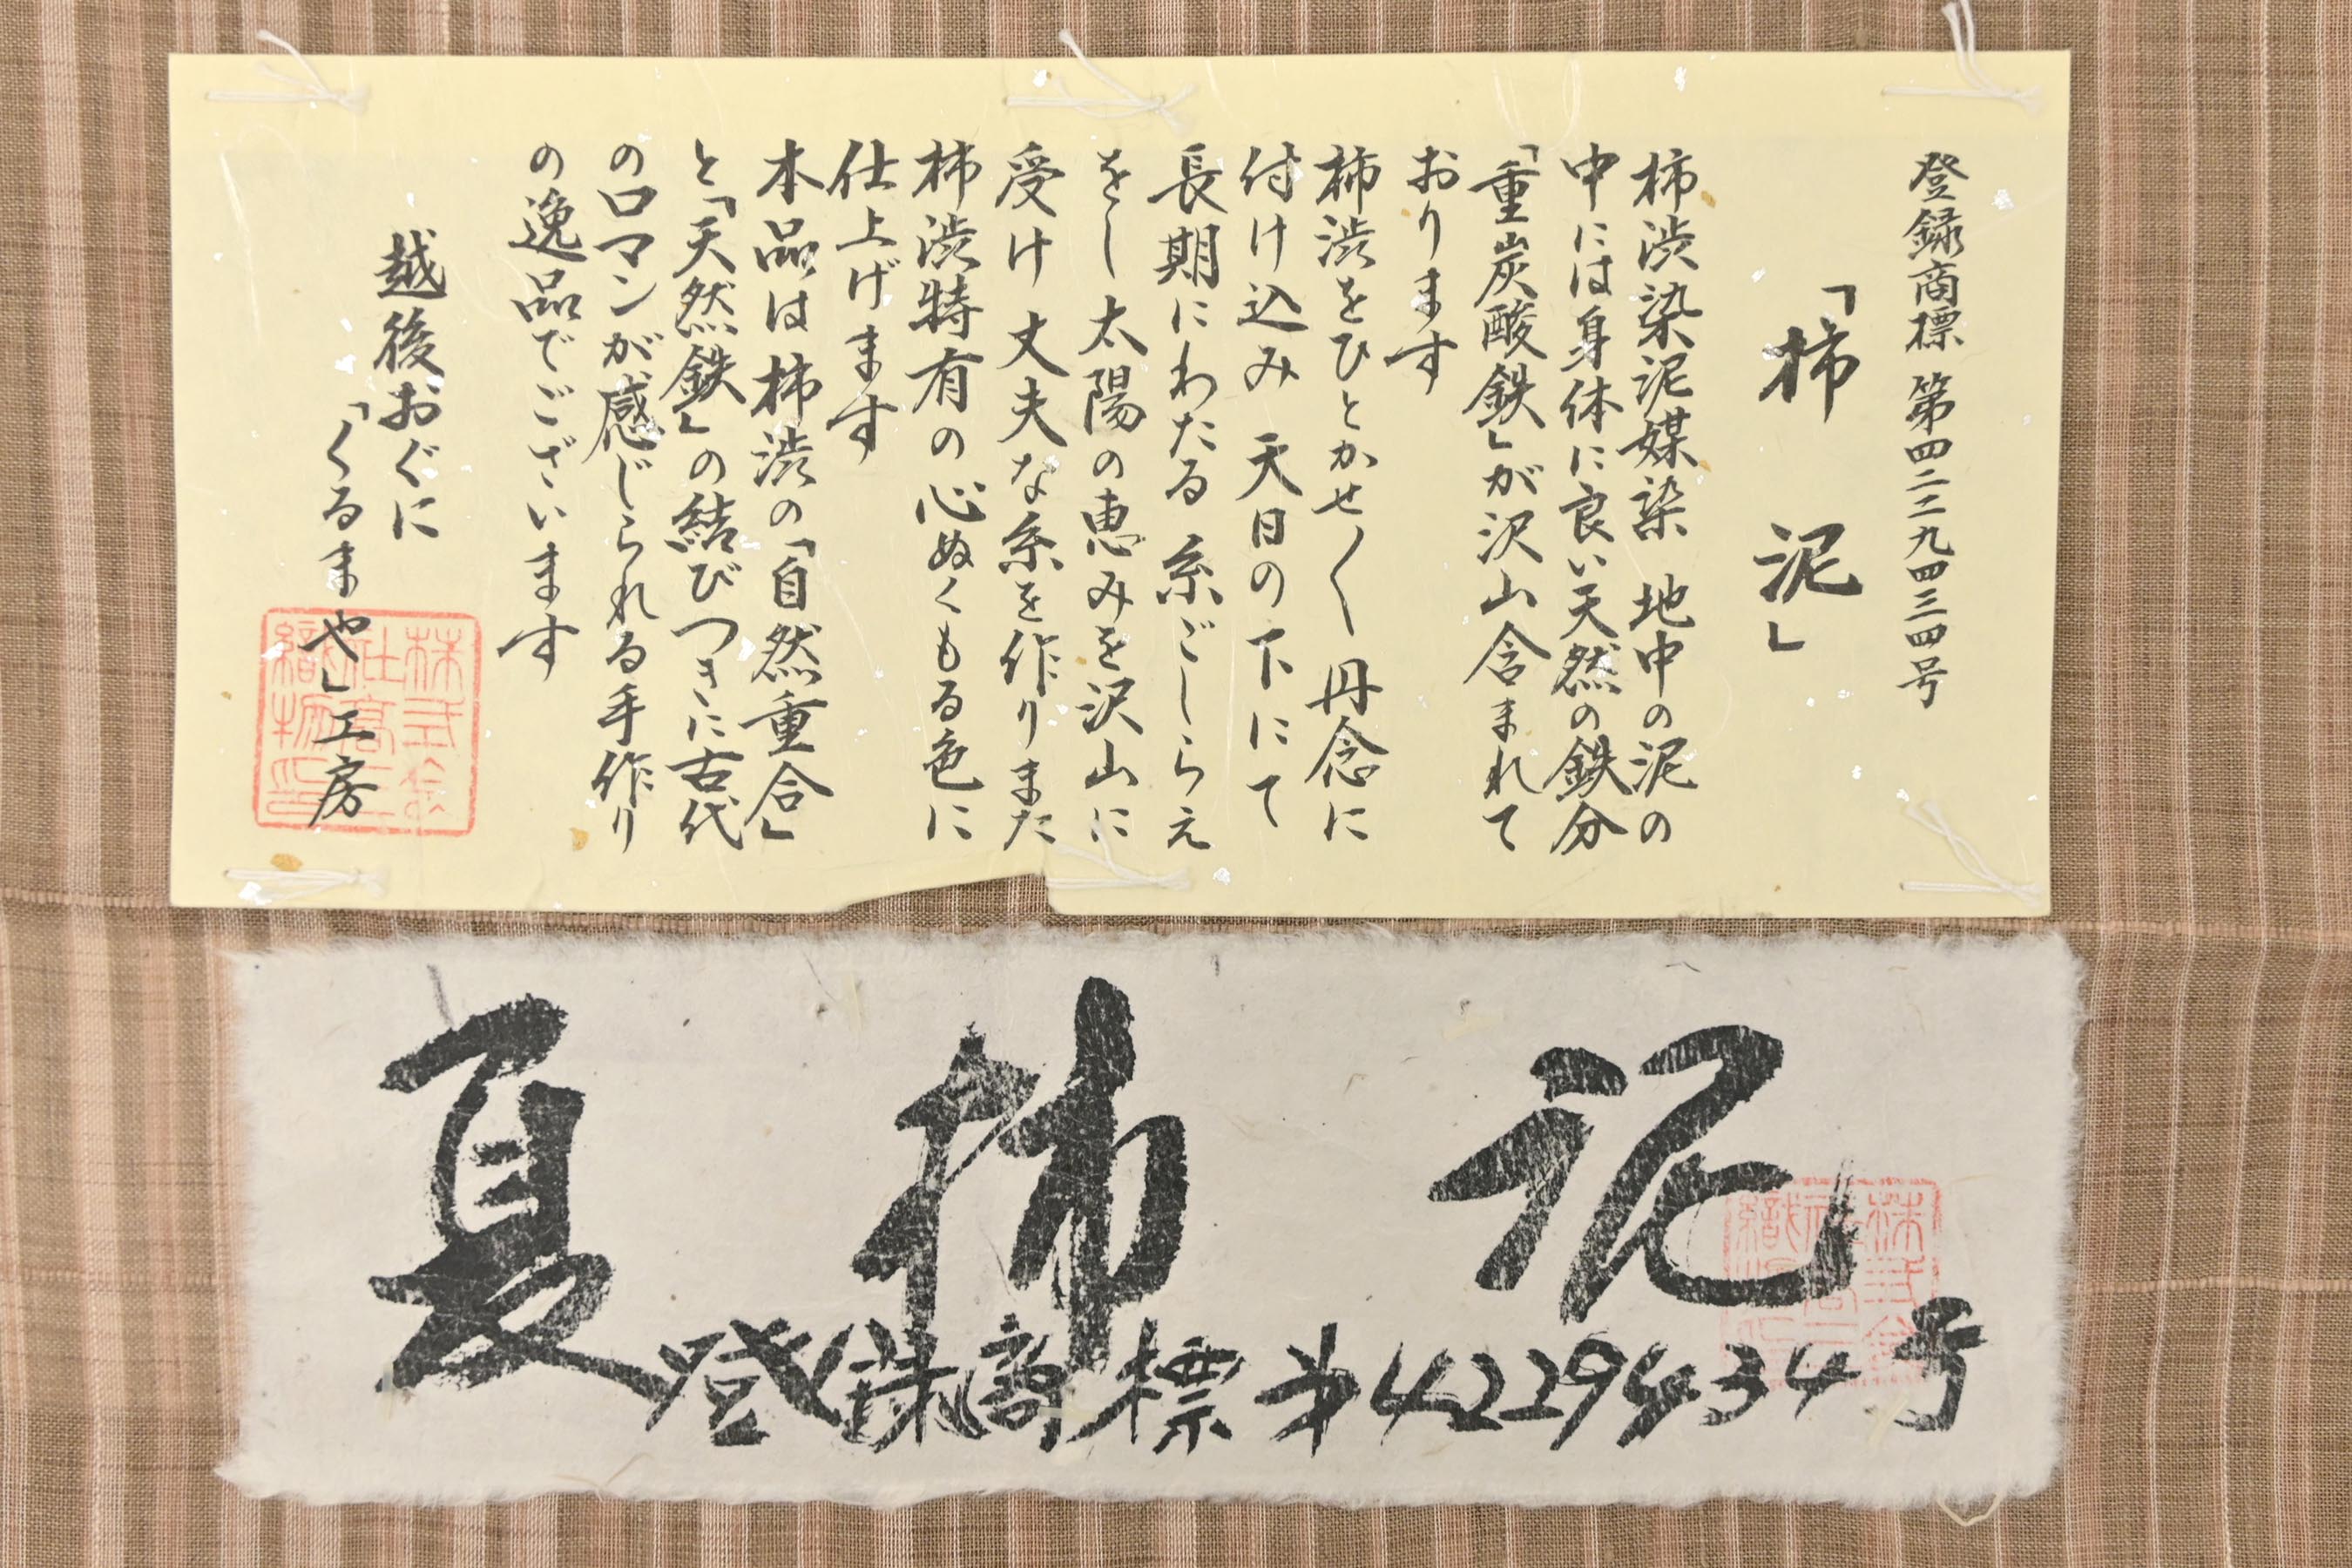 登録商標 第四二二九四三四号
「柿 泥」
柿渋染泥媒染 地中の泥の
中には身体に良い天然の鉄分
「重炭酸鉄」が沢山含まれて
おります
柿渋をひとかせ〱 丹念に
付け込み 天日の下にて
長期にわたる糸ごしらえ
をし 太陽の恵みを沢山に
受け 丈夫な糸を作りまた
柿渋特有の心ぬくもる色に
仕上げます
本品は柿渋の「自然重合」
と「天然鉄」の結びつきに古代
のロマンが感じられる手作り
の逸品でございます
越後おぐに
「くるまや」工房
夏柿泥
登録商標 第4229434号